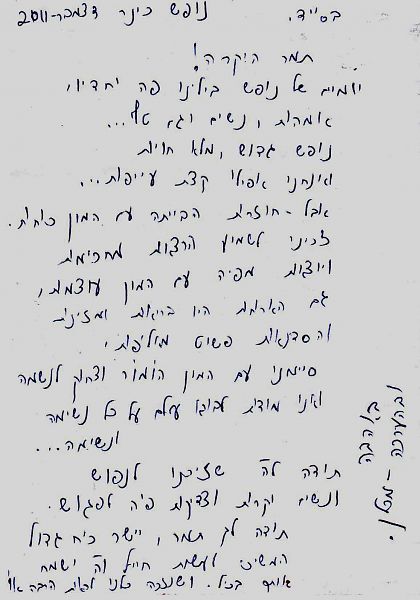 בס״ד. נופש כינר דצמבר-2011
תמר היקרה!
יומיים של נופש בילינו פה יחדיו,
אמהות, נשים וגם טף...
נופש גדוש, מלא חוויות
ואנחנו אפילו קצת עייפות...
אבל - חוזרות הביתה עם המון כוחות.
זכינו לשמוע הרצאות מחכימות
ויוצאות מפה עם המון עוצמות,
גם הארוחות היו בריאות ומזינות
והסדנאות פשוט מאלפות,
סיימנו עם המון הומור וצחוק לנשמה
ואני מודה לבורא עולם על כל נשימה
ונשימה...
תודה לה׳ שזיכנו לנפוש
ונשים יקרות וצדקות פה לפגוש.
תודה לך תמר, יישר כח גדול
המשיכי לעשות חייל וה׳ ישמח
אותך בכל. ושנזכה כולנו לראות הרבה אור
באהבה
ובהערכה -